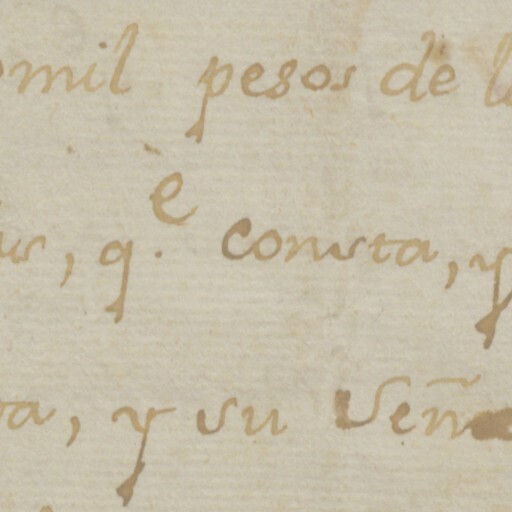 mil pesos de
, q.e consta, y
, y su Señ